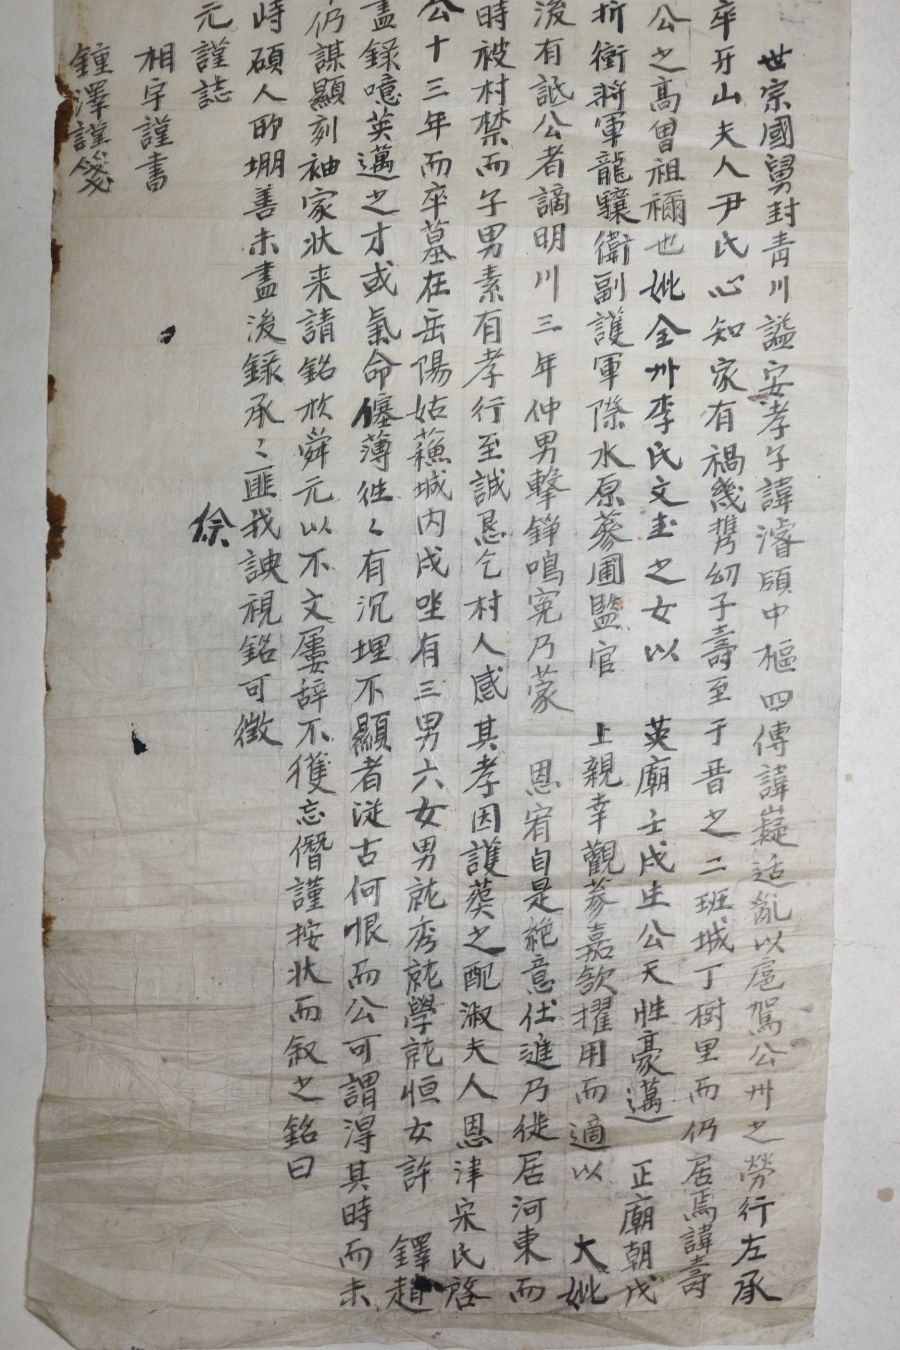 世宗國舅封靑川諡安孝子諱濬領中樞四傳諱嶷适亂以扈駕公州之勞行左承
卒牙山夫人尹氏心知家有禍幾携幼子壽至于晋之二班城丁樹里而仍居焉諱壽
公之高曾祖禰也妣全州李氏文圭之女以 英廟壬戌生公天性豪邁 正廟朝戊
折衝將軍龍驤衛副護軍際水原蔘圃監官 上親幸觀蔘嘉歎擢用而適以 大妣
後有詆公者謫明川三年仲男擊錚鳴寃乃蒙 恩宥自是絶意仕進乃徙居河東而
時被村禁而子男素有孝行至誠恳乞村人感其孝因護葬之配淑夫人恩津宋氏啓
公十三年而卒墓在岳陽姑蘓城内戌坐有三男六女男就秀就學就恒女許 鐸趙
盡錄噫英邁之才或氣命僿薄徃〻有沉埋不顯者從古何恨而公可謂淂其時而未
仍謀顯刻袖家狀来請銘於舜元以不文屢辞不獲忘僭謹按狀而叙之銘曰
時碩人卽堋善未盡後錄承〻匪我諛視銘可徴
元謹誌
徐
相宇謹書
鍾澤謹箋